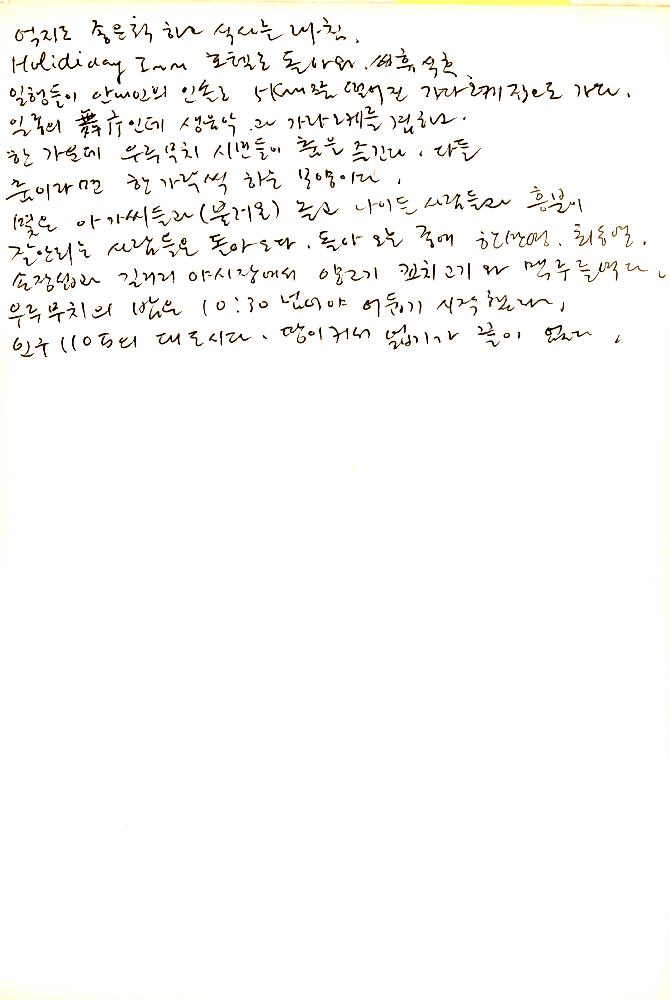 억지로 좋은척 하고 식사는 마침.
Holidiay Inn 호텔로 돌아와 휴식후
일행들이 안내인의 인솔로 5Km쯤 떨어진 가라오케집으로 가다.
일종의 舞庁인데 생음악과 가라오케를 겸하고.
한 가운데 우루무치 시민들이 춤을 즐긴다. 다들
춤이라면 한가락씩 하는 모양이다.
몇은 아가씨들과 (불거요) 놀고 나이든 사람들과 흥분이
잘안되는 사람들은 돌아오다. 돌아 오는 중에
길거리 야시장에서 양고기 꼬치고기와 맥주를 먹다.
우루무치의 밤은 10:30 넘어야 어둡기 시작했다.
인구 110만의 대도시다. 땅이커서 넓기가 끝이 없다.